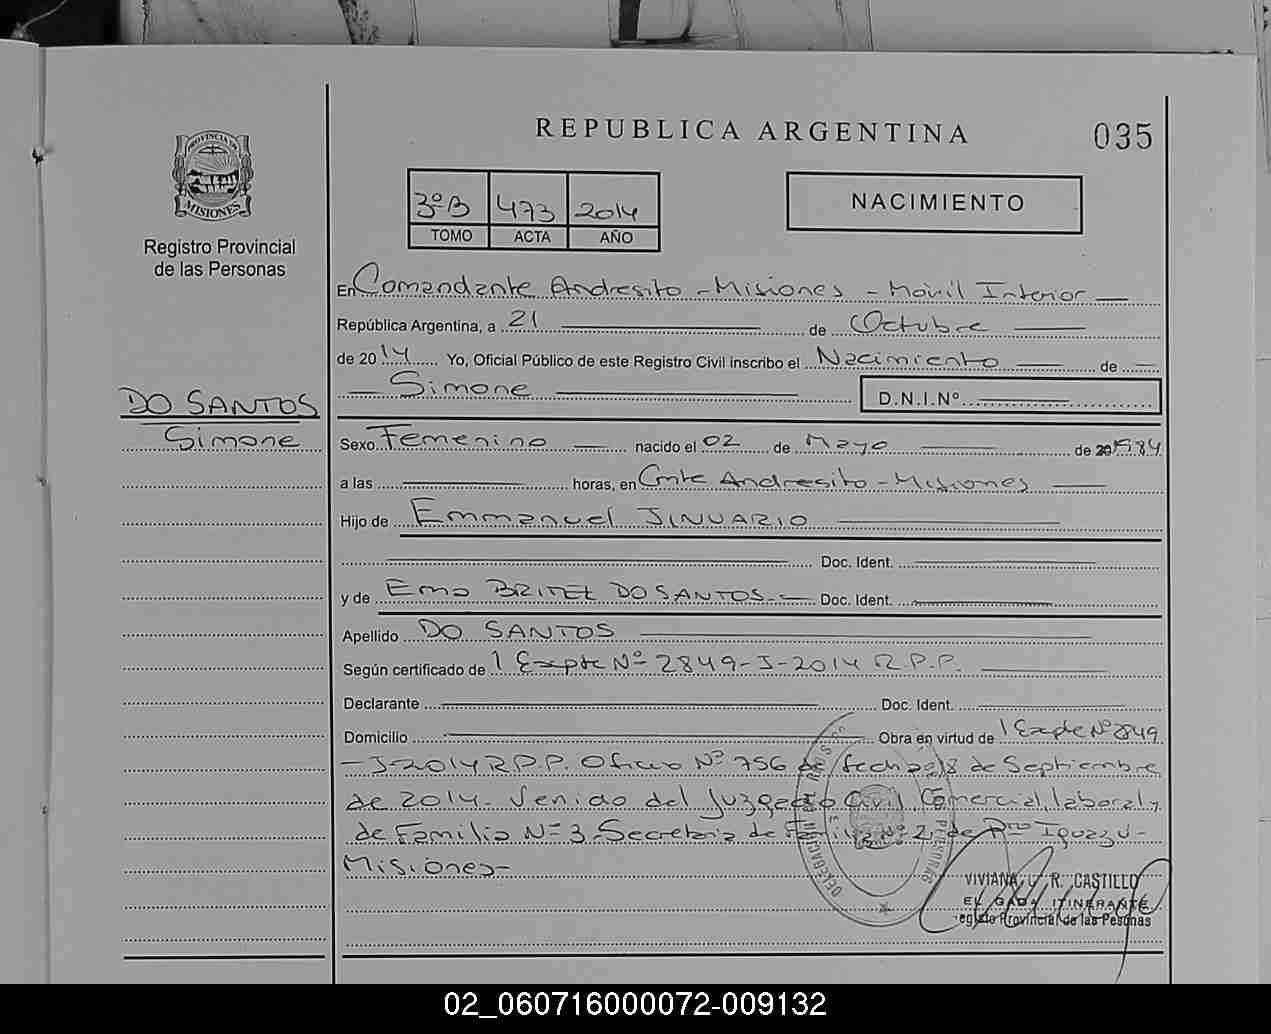 REPUBLICA ARGENTINA
035
PROVINCIA DE
MISIONES
Registro Provincial
de las Personas
3º B 473 2014
TOMO ACTA AÑO
NACIMIENTO
En Comandante Andresito - Misiones - Móvil Interior
República Argentina, a 21 de Octubre
de 2014 Yo, Oficial Público de este Registro Civil inscribo el Nacimiento de
Simone
D.N.I.Nº
DO SANTOS
Simone
Sexo Femenino nacido el 02 de Mayo de 1984
a las horas, en Cmte Andresito - Misiones
Hijo de Emmanuel JINUARIO
Doc. Ident.
y de Ema BRITEL DO SANTOS.- Doc. Ident.
Apellido DO SANTOS
Según certificado de 1 Expte Nº 2849-J-2014 R.P.P.
Declarante Doc. Ident.
Domicilio Obra en virtud de 1 Expte Nº 2849
-J-2014 R.P.P. Oficio Nº 756 de fecha 28 de Septiembre
de 2014. Venido del Juzgado Civil Comercial, laboral y
de Familia Nº 3 - Secretaria de Familia Nº 2, de Pto Iguazu -
Misiones-
VIVIANA R. CASTILLO
ITINERANTE
Registro Provincial de las Pesonas
02_060716000072-009132